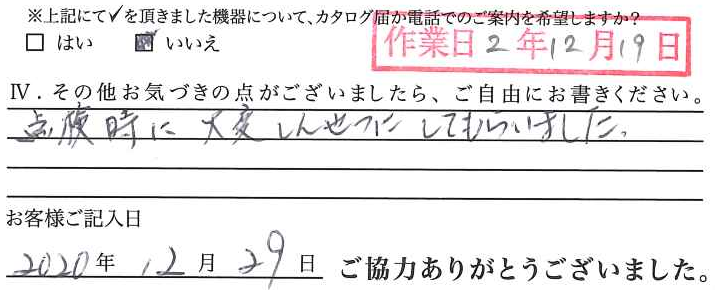 ※上記にて✓を頂きました機器について、カタログ届か電話でのご案内を希望しますか?
□ はい ☑ いいえ
作業日 2年12月19日
Ⅳ．その他お気づきの点がございましたら、ご自由にお書きください。
点腹時に大変しんせつにしてもらいました。
お客様ご記入日
2020年 12月 29日 ご協力ありがとうございました。